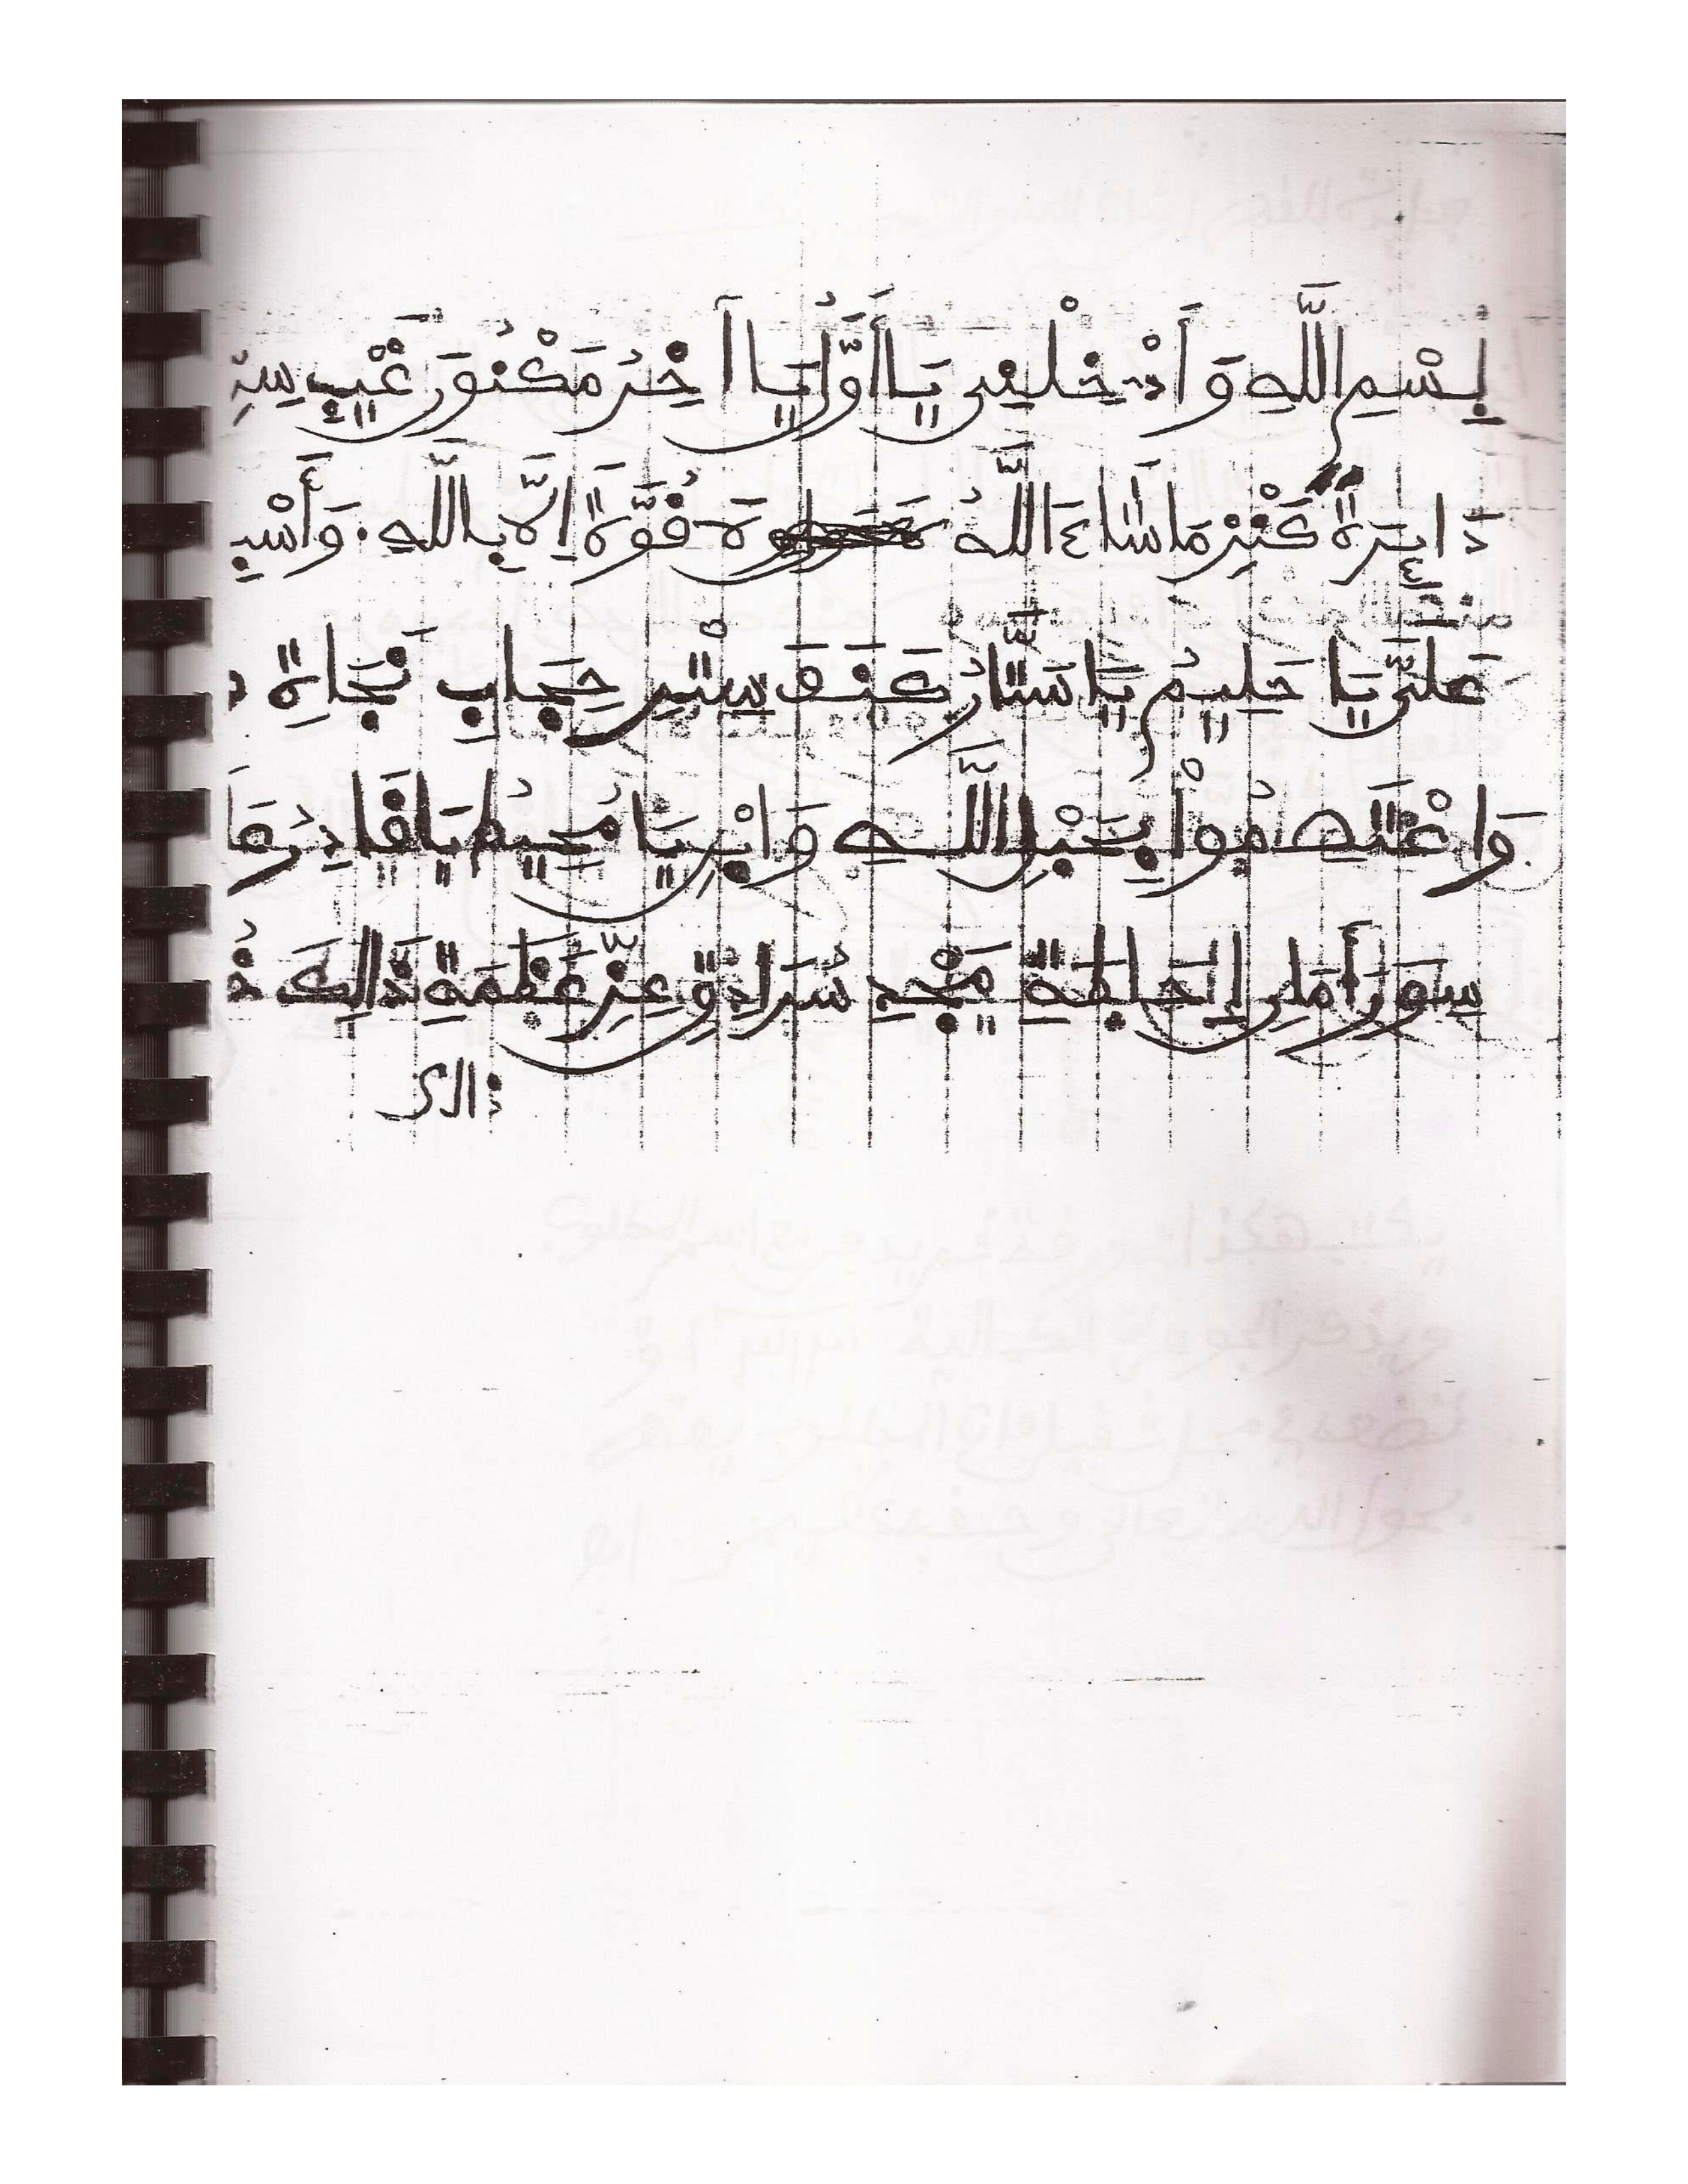 بِسْمِ اللَّهِ وَأَدْخِلْنِي يَا أَوَّلُ يَا آخِرُ مَكْنُونَ غَيْبِ سِرِّ
دَايِرَةِ كَنْزِ مَا شَاءَ اللَّهُ قُوَّةَ إِلَّا بِاللَّهِ. وَأَسْبِ
عَلَيَّ يَا حَلِيمُ يَا سَتَّارُ كَنَفَ سِتْرِ حِجَابِ نَجَاةِ
وَاعْتَصِمُواْ بِحَبْلِ اللَّهِ وَابْنِ يَا مُحِيطُ يَا قَادِرُ عَ
سُورَ أَمَانِ إِحَاطَةِ مَجْدِ سُرَادِقِ عِزِّ عَظَمَةِ ذَالِكَ